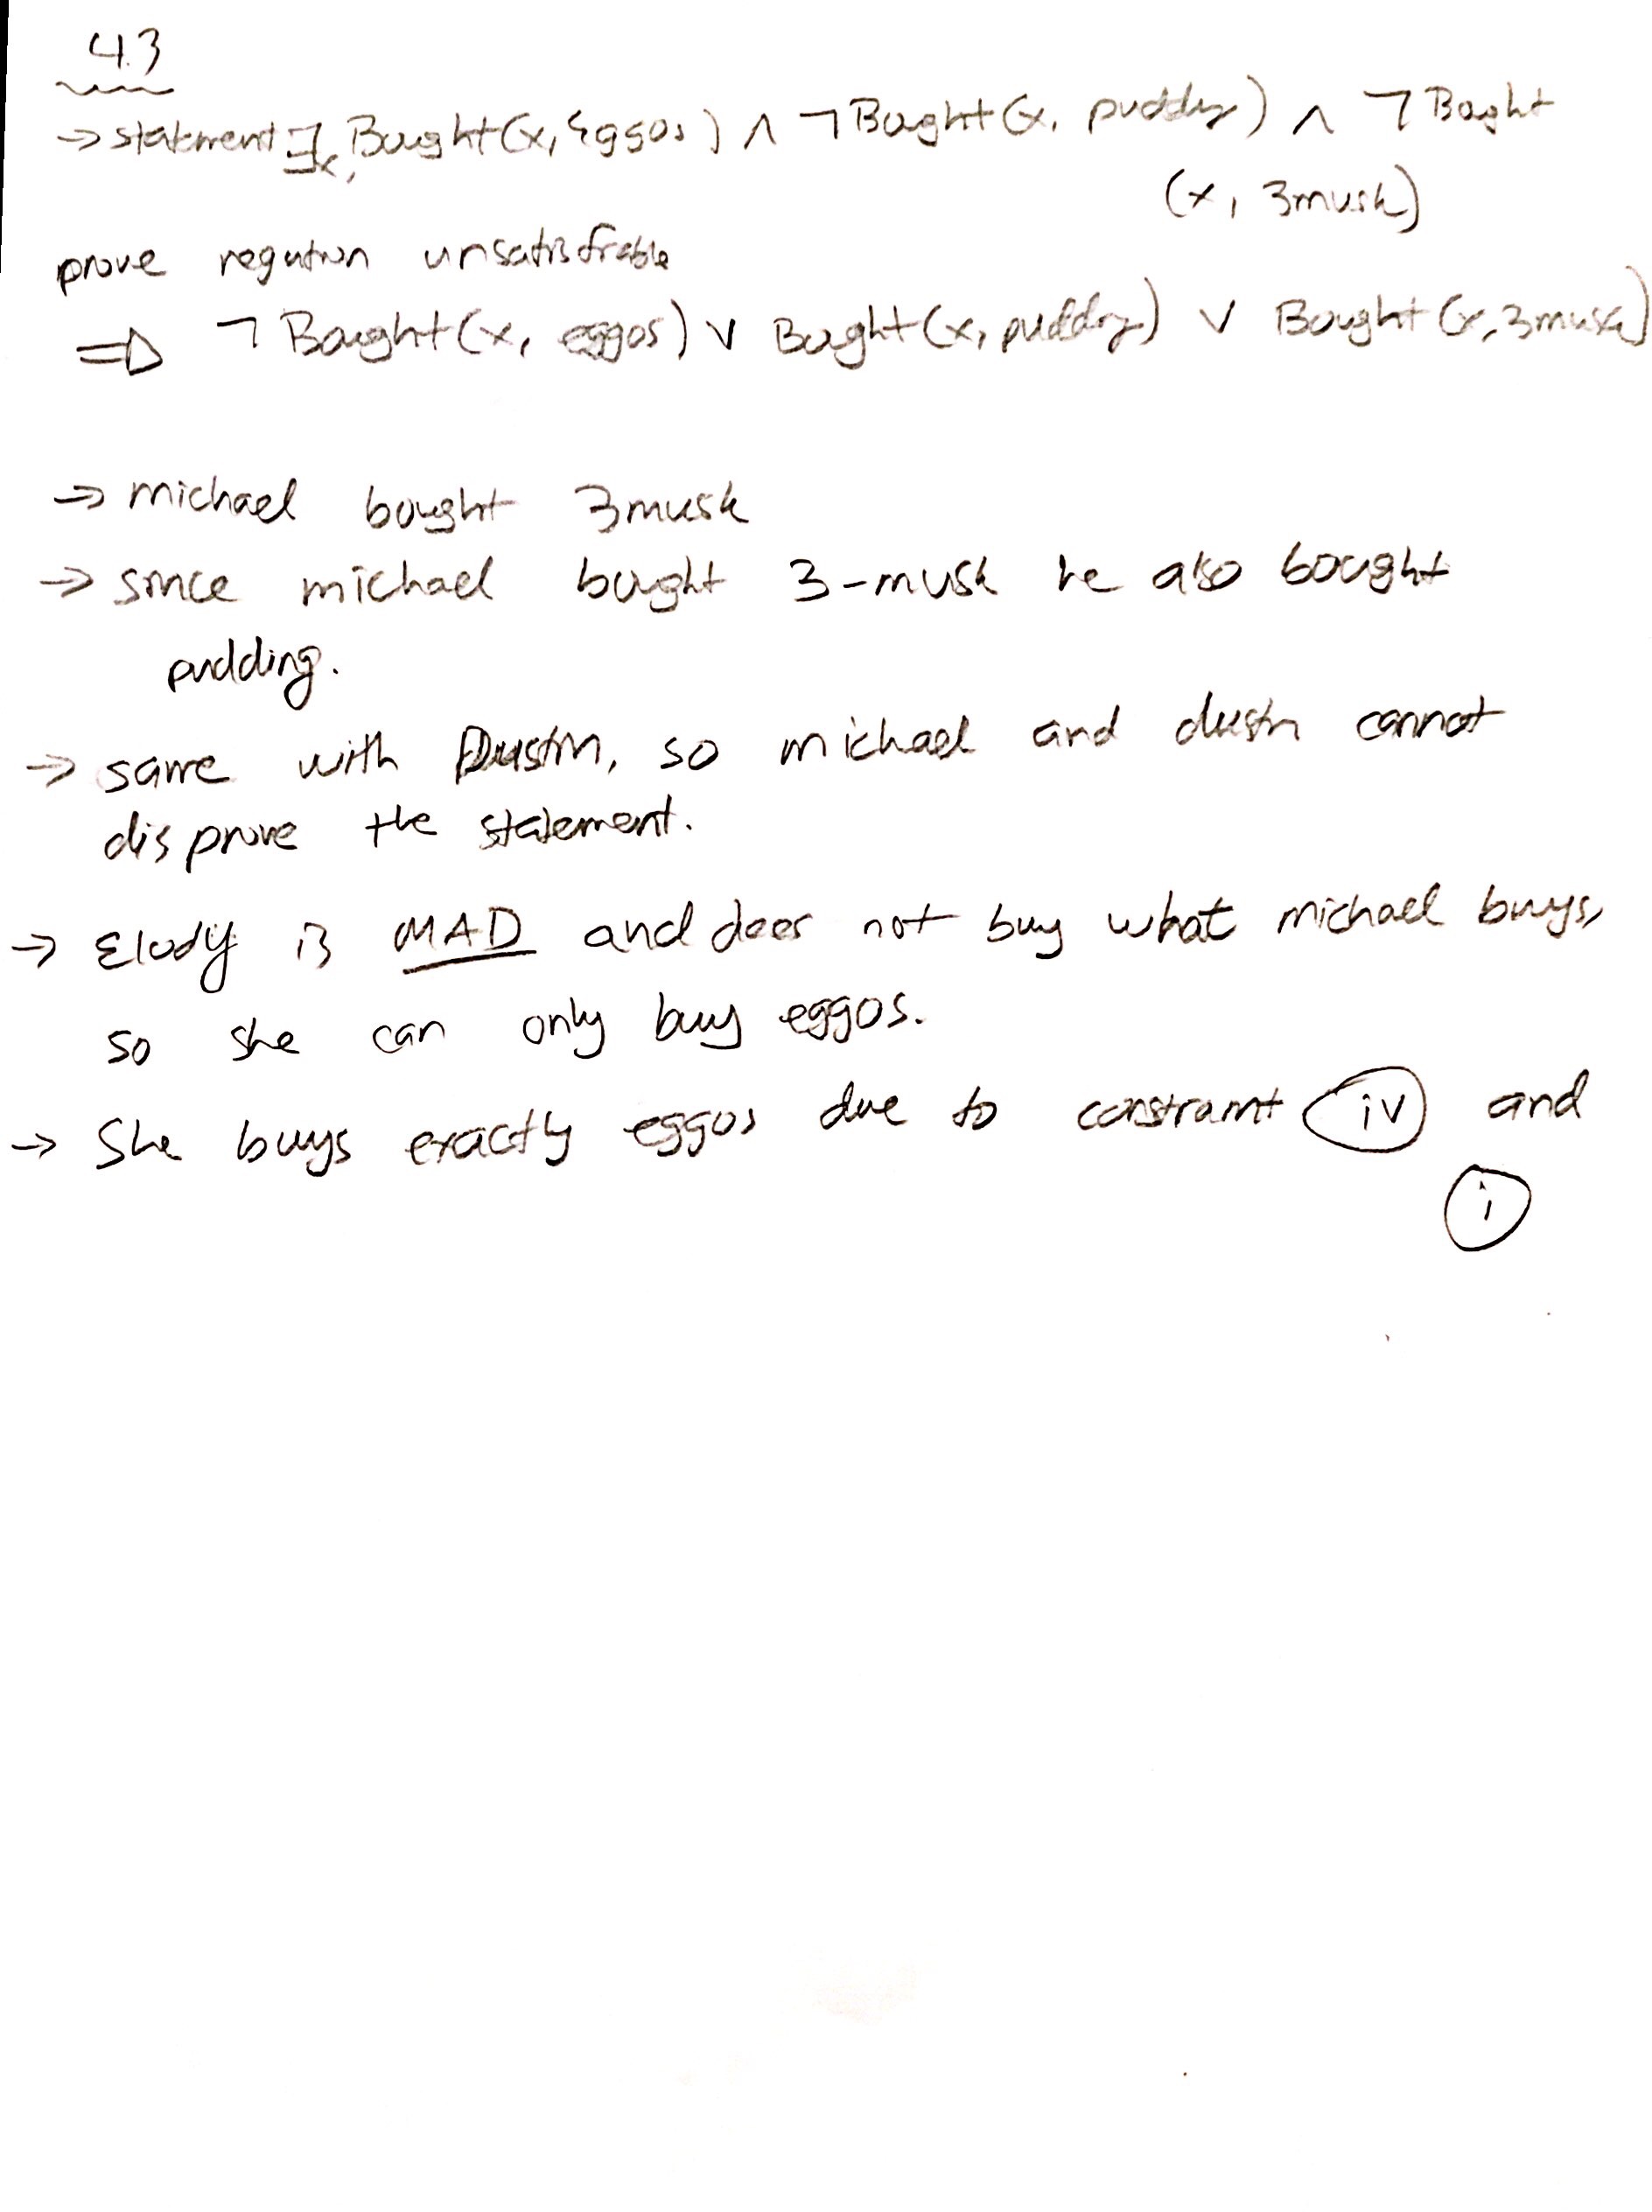 4.3
→ statement ∃x, Bought(x, Eggos) ∧ ¬Bought(x, pudding) ∧ ¬Bought
(x, 3musk)
prove negation unsatisfiable
⇒ ¬Bought(x, eggos) ∨ Bought(x, pudding) ∨ Bought(x, 3musk)
→ michael bought 3musk
→ since michael bought 3-musk he also bought
pudding.
→ same with Dustin, so michael and dustin cannot
disprove the statement.
→ Elody is MAD and does not buy what michael buys,
so she can only buy eggos.
→ She buys exactly eggos due to constraint iv and
i